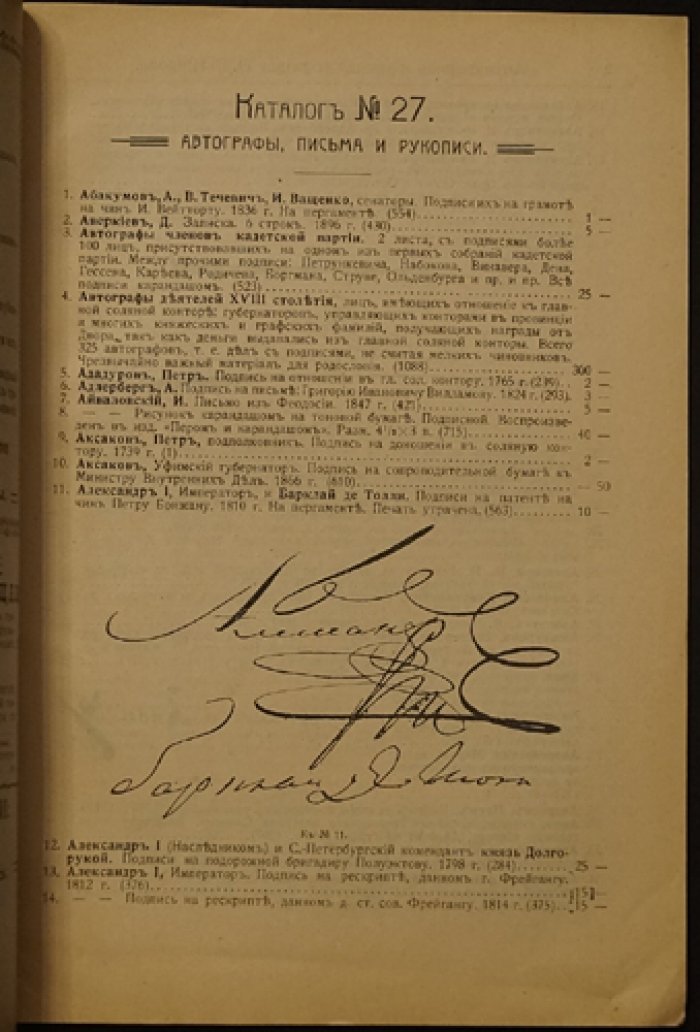 Каталогъ № 27.
АВТОГРАФЫ, ПИСЬМА И РУКОПИСИ.
1. Абакумовъ, А., В. Течевичъ, И. Ващенко, сенаторы. Подписи ихъ на грамотѣ
на чинъ И. 1836 г. На пергаментѣ. (554) 1 —
2. Аверкіевъ, Д. Записка. 6 строкъ. 1896 г. (430) 5 —
3. Автографы членовъ кадетской партіи. 2 листа, съ подписями болѣе
100 лицъ, присутствовавшихъ на одномъ изъ первыхъ собраній кадетской
партіи. Между прочими подписи: Петрункевича, Набокова, Винавера, Дена,
Гессена, Карѣева, Родичева, Боргмана, Струве, Ольденбурга и пр. и пр. Всѣ
подписи карандашомъ. (523) 25 —
4. Автографы дѣятелей XVIII столѣтія, лицъ, имѣющихъ отношеніе къ глав-
ной соляной конторѣ: губернаторовъ, управляющихъ конторами въ провинціи
и многихъ княжескихъ и графскихъ фамилій, получающихъ награды отъ
Двора, такъ какъ деньги выдавались изъ главной соляной конторы. Всего
325 автографовъ, т. е. дѣлъ съ подписями, не считая мелкихъ чиновниковъ.
Чрезвычайно важный матеріалъ для родословія. (1088) 300 —
5. Ададуровъ, Петръ. Подпись на отношеніи въ гл. сол. контору. 1765 г. (239) 2 —
6. Адлербергъ, А. Подпись на письмѣ Григорію Ивановичу Вилламову. 1824 г. (293). 3 —
7. Айваловскій, И. Письмо изъ Феодосіи. 1847 г. (421) 5 —
8. — — Рисунокъ карандашомъ на тоновой бумагѣ. Подписной. Воспроизве-
денъ въ изд. «Перомъ и карандашомъ». Разм. 4½×3 в. (715) 40 —
9. Аксаковъ, Петръ, подполковникъ. Подпись на доношеніи въ соляную кон-
тору. 1739 г. (1) 2 —
10. Аксаковъ, Уфимскій губернаторъ. Подпись на сопроводительной бумагѣ къ
Министру Внутреннихъ Дѣлъ. 1866 г. (610) — 50
11. Александръ I, Императоръ, и Барклай де Толли. Подписи на патентѣ на
чинъ Петру Бонжану. 1810 г. На пергаментѣ. Печать утрачена. (563) 10 —
Александръ
Барклай де Толли
Къ № 11.
12. Александръ I (Наслѣдникомъ) и С.-Петербургскій комендантъ князь Долго-
рукой. Подписи на подорожной бригадиру Полуектову. 1798 г. (284) 25 —
13. Александръ I, Императоръ. Подпись на рескриптѣ, данномъ г. Фрейгангу.
1812 г. (376) 15 —
14. — — Подпись на рескриптѣ, данномъ д. ст. сов. Фрейгангу. 1814 г. (375) 15 —